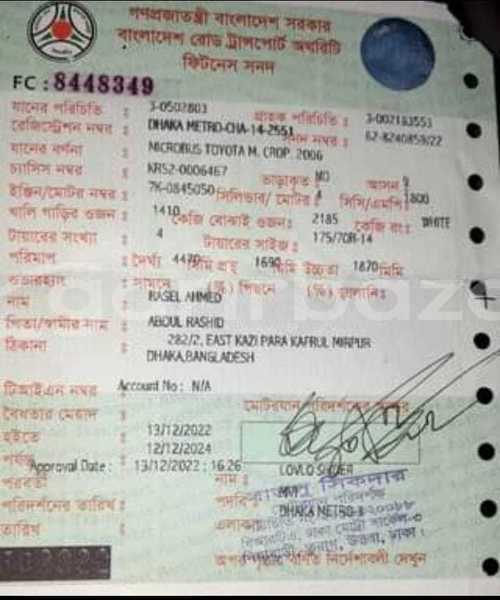 গণপ্রজাতন্ত্রী বাংলাদেশ সরকার
বাংলাদেশ রোড ট্রান্সপোর্ট অথরিটি
ফিটনেস সনদ
FC : 8448349
যানের পরিচিতি : 3-0502803 গ্রাহক পরিচিতি : 3-002183553
রেজিস্ট্রেশন নম্বর : DHAKA METRO-CHA-14-2551 নম্বর : 62-8240859/22
যানের বর্ণনা : MICROBUS TOYOTA M. CROP. 2006
চ্যাসিস নম্বর : KR52-0006467 ভাড়াকৃত NO আসন 9
ইঞ্জিন/মোটর নম্বর : 7K-0845050 সিলিন্ডার/ মোটর 4 সিসি/এমপি 1800
খালি গাড়ির ওজন : 1410 কেজি বোঝাই ওজন: 2185 কেজি রং: WHITE
টায়ারের সংখ্যা : 4 টায়ারের সাইজ : 175/70R-14
পরিমাপ : দৈর্ঘ্য 4470 মিমি প্রস্থ 1690 মিমি উচ্চতা 1870 মিমি
ওভারহ্যাং : সামনে (%) পিছনে (%) জ্বালানি:
নাম : RASEL AHMED
পিতা/স্বামীর নাম : ABDUL RASHID
ঠিকানা : 282/2, EAST KAZI PARA KAFRUL MIRPUR
DHAKA,BANGLADESH
টিআইএন নম্বর Account No : N/A
বৈধতার মেয়াদ : মোটরযান পরিদর্শকের
হইতে : 13/12/2022
পর্যন্ত 12/12/2024
Approval Date : 13/12/2022 : 16:26
পরবর্তী নাম :
পরিদর্শনের তারিখ : পদবি: MVI
তারিখ এলাকা: DHAKA METRO-3
বর্ণিত নির্দেশাবলী দেখুন